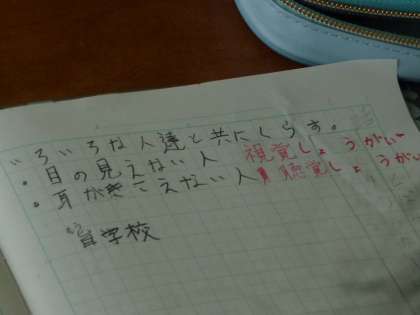 いろいろな人達と共にくらす。
・目の見えない人 視覚しょうがい
・耳がきこえない人 聴覚しょうがい
盲学校